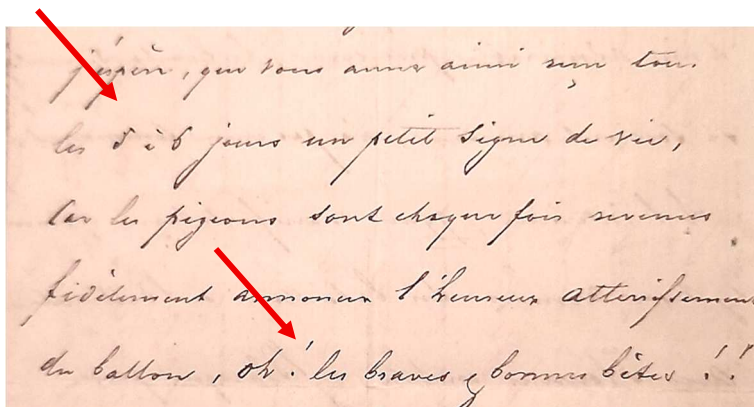 j'espère, que vous aurez ainsi reçu tous
les 5 à 6 jours un petit signe de vie,
Car les pigeons sont chaque fois revenus
fidèlement annoncer l'heureux atterissement
du ballon, oh! les braves & bonnes bêtes!!